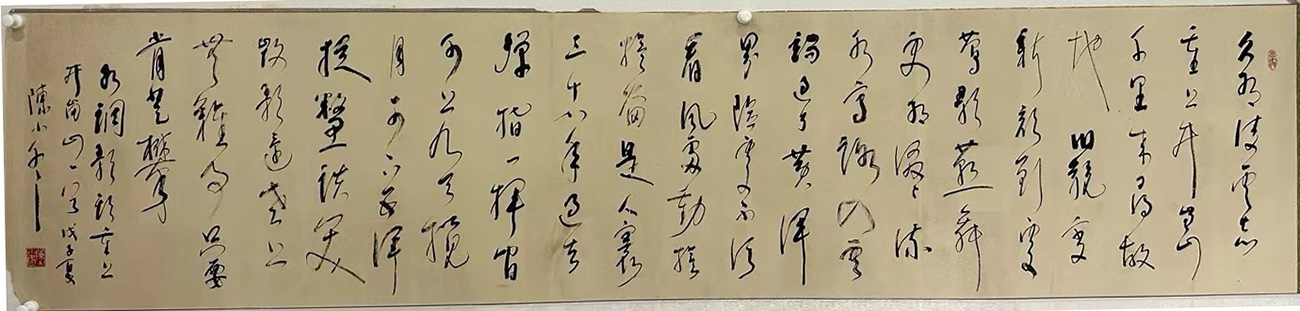 久有凌雲志
重上井岡山
千里来寻故
地 旧貌变
新颜到处
莺歌燕舞
更有潺々流
水高路入雲
端过了黄洋
界险处不须
看风雷动旌
旗奋是人寰
三十八年过去
弹指一挥间
可上九天揽
月可下五洋
捉鳖谈笑
凯歌还世上
無難事只要
肯登攀
水調歌頭重上
井崗山一首 戊子夏
陳小